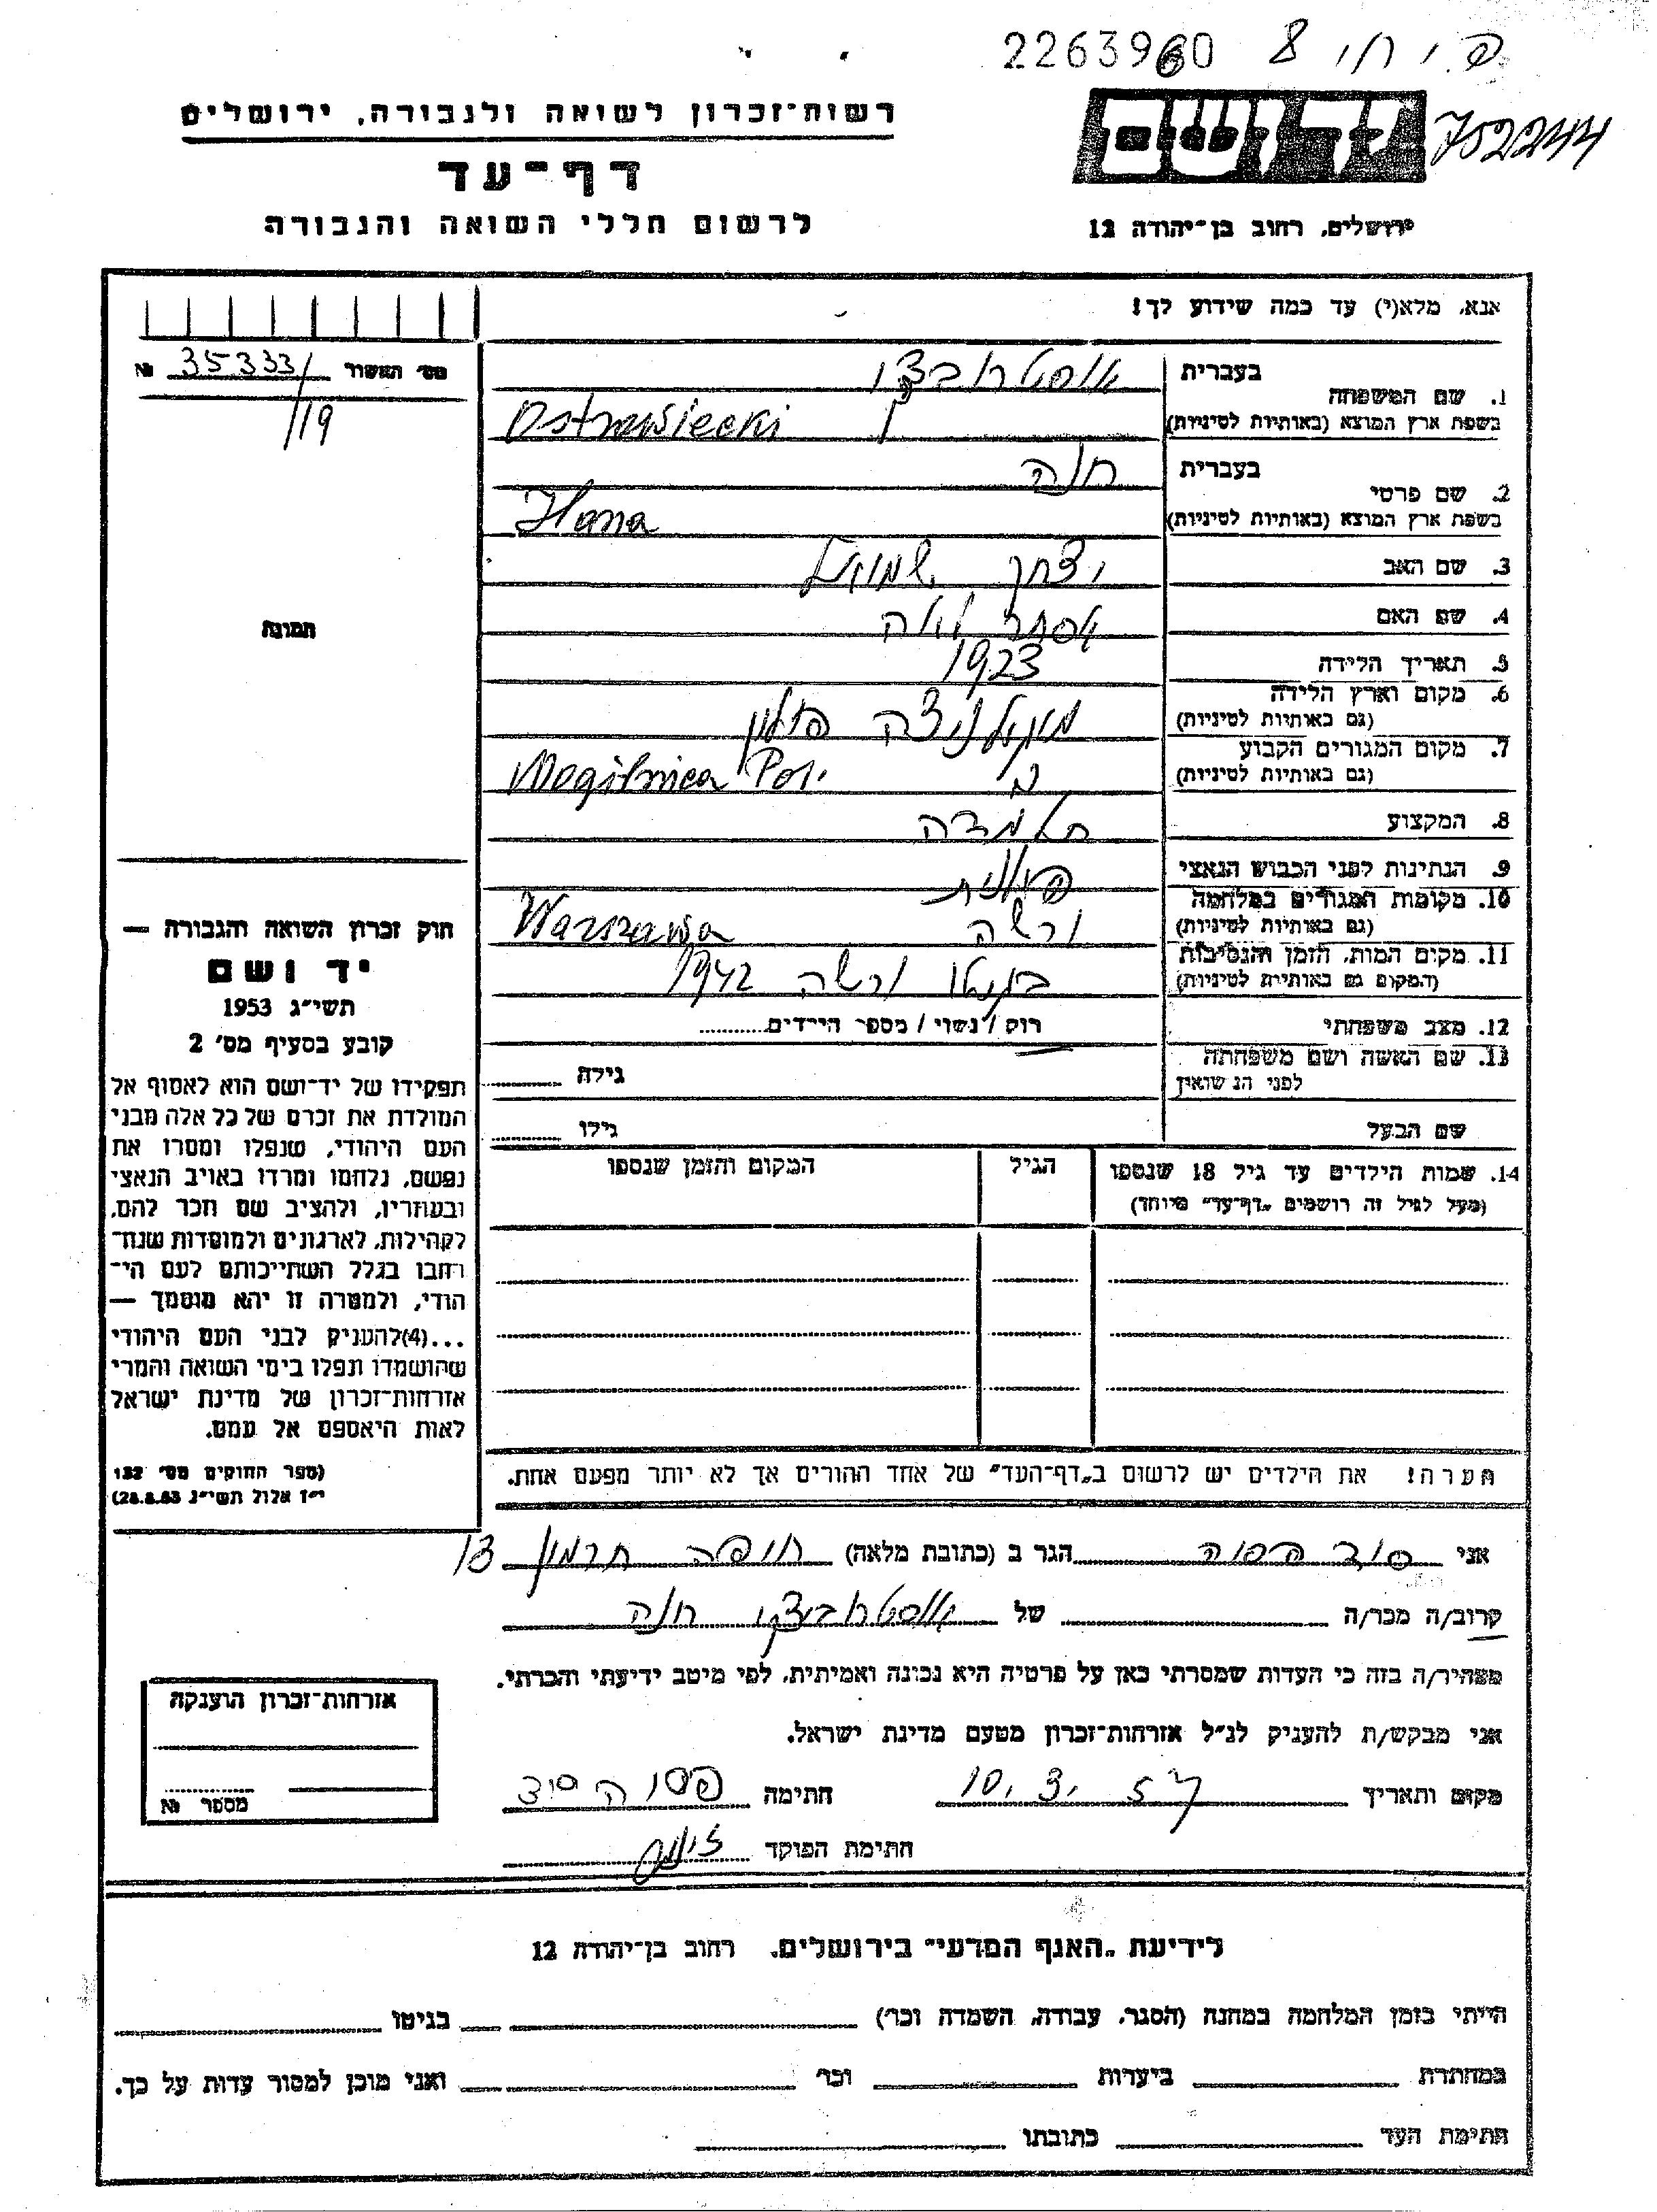 2263960
752244
רשות־זכרון לשואה ולגבורה, ירושלים
דף־עד
לרשום חללי השואה והגבורה
ירושלים, רחוב בן־יהודה 12
אנא, מלא(י) עד כמה שידוע לך!
מס׳ האשור 35333/ №
/19
1. שם המשפחה
בעברית אוסטרובצקי
בשפת ארץ המוצא (באותיות לטיניות) Ostrowiecki
2. שם פרטי
בעברית חנה
בשפת ארץ המוצא (באותיות לטיניות) Hana
3. שם האב יצחק שמואל
4. שם האם אסתר לאה
5. תאריך הלידה 1923
6. מקום וארץ הלידה מוגלניצה פולין
(גם באותיות לטיניות)
7. מקום המגורים הקבוע Mogilnica Pol.
(גם באותיות לטיניות)
8. המקצוע תלמידה
9. הנתינות לפני הכבוש הנאצי פולנית
10. מקומות המגורים במלחמה ורשה Warszawa
(גם באותיות לטיניות)
11. מקום המות, הזמן והנסיבות בגיטו ורשה 1942
(המקום גם באותיות לטיניות)
12. מצב משפחתי רוק / נשוי / מספר הילדים
13. שם האשה ושם משפחתה גילה
לפני הנשואין
שם הבעל גילו
14. שמות הילדים עד גיל 18 שנספו הגיל המקום והזמן שנספו
(מעל לגיל זה רושמים „דף־עד״ מיוחד)
הערה! את הילדים יש לרשום ב„דף־העד״ של אחד ההורים אך לא יותר מפעם אחת.
תמונה
חוק זכרון השואה והגבורה —
יד ושם
תשי״ג 1953
קובע בסעיף מס׳ 2
תפקידו של יד־ושם הוא לאסוף אל
המולדת את זכרם של כל אלה מבני
העם היהודי, שנפלו ומסרו את
נפשם, נלחמו ומרדו באויב הנאצי
ובעוזריו, ולהציב שם וזכר להם,
לקהילות, לארגונים ולמוסדות שנח־
רבו בגלל השתייכותם לעם הי־
הודי, ולמטרה זו יהא מוסמך —
...(4)להעניק לבני העם היהודי
שהושמדו ונפלו בימי השואה והמרי
אזרחות־זכרון של מדינת ישראל
לאות היאספם אל עמם.
(ספר החוקים מס׳ 132
י״ז אלול תשי״ג 28.8.53)
אני הגר ב (כתובת מלאה) חיפה חרמון 13
קרוב/ה מכר/ה של אוסטרוביצקי חנה
מצהיר/ה בזה כי העדות שמסרתי כאן על פרטיה היא נכונה ואמיתית, לפי מיטב ידיעתי והכרתי.
אני מבקש/ת להעניק לנ״ל אזרחות־זכרון מטעם מדינת ישראל.
מקום ותאריך 10.3. חתימה
חתימת הפוקד
אזרחות־זכרון הוענקה
מספר №
לידיעת „האגף המדעי״ בירושלים, רחוב בן־יהודה 12
הייתי בזמן המלחמה במחנה (הסגר, עבודה, השמדה וכו׳) בגיטו
במחתרת ביערות וכו׳ ואני מוכן למסור עדות על כך.
חתימת העד כתובתו